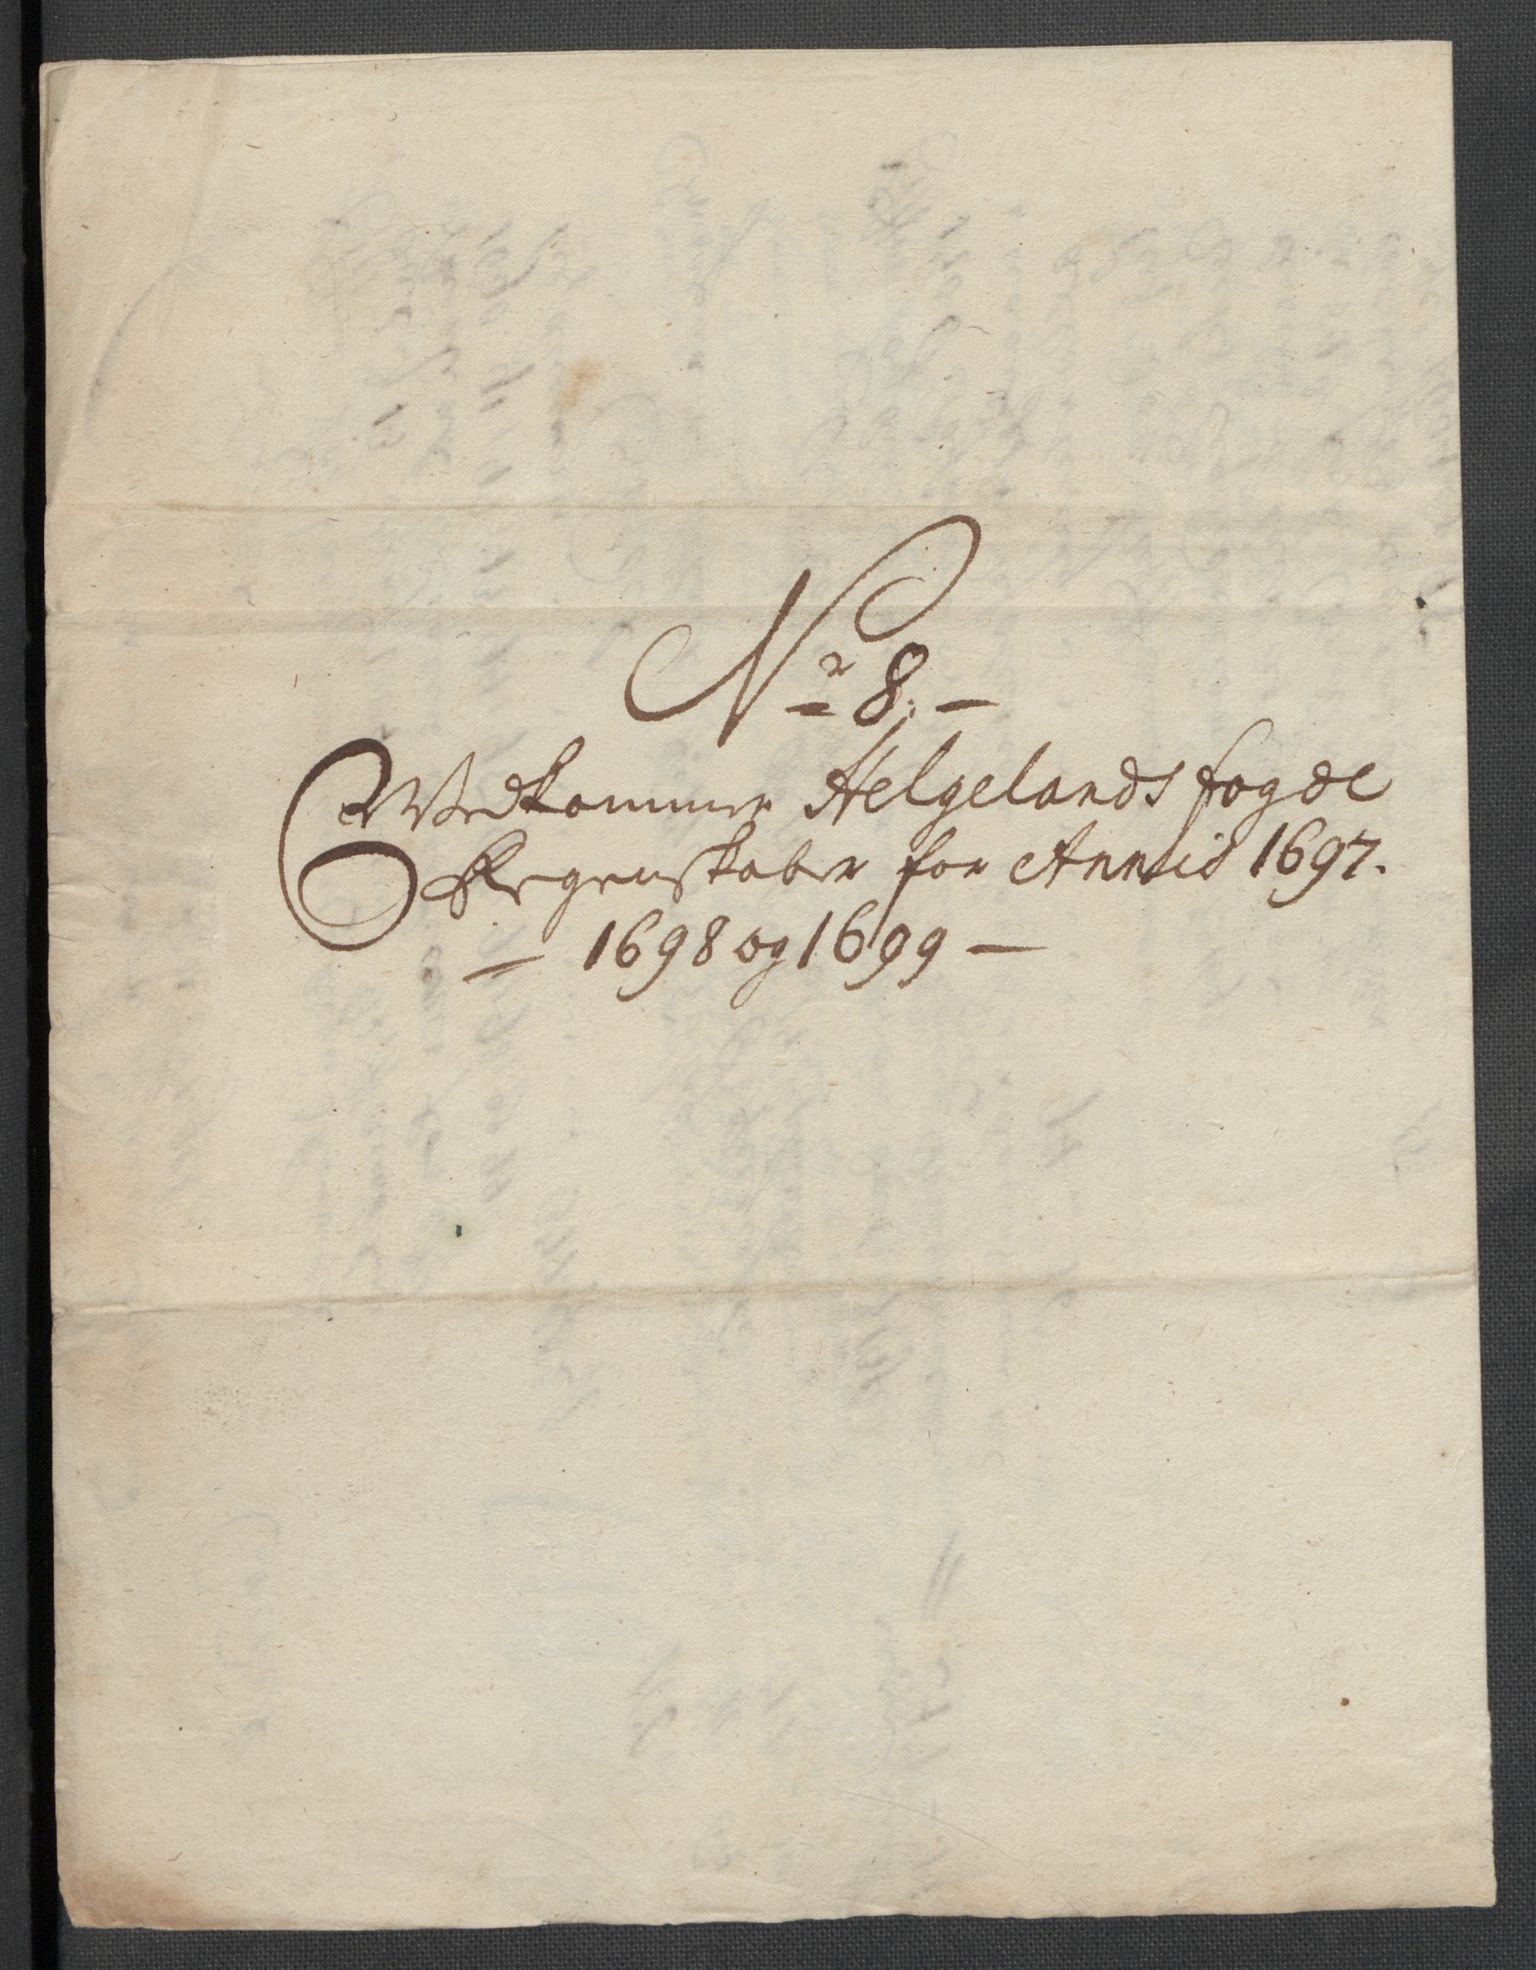 Nr 8. —
Vedkommer Helgelands fogde
Regenskaber for Annis 1697.
— 1698 og 1699 —